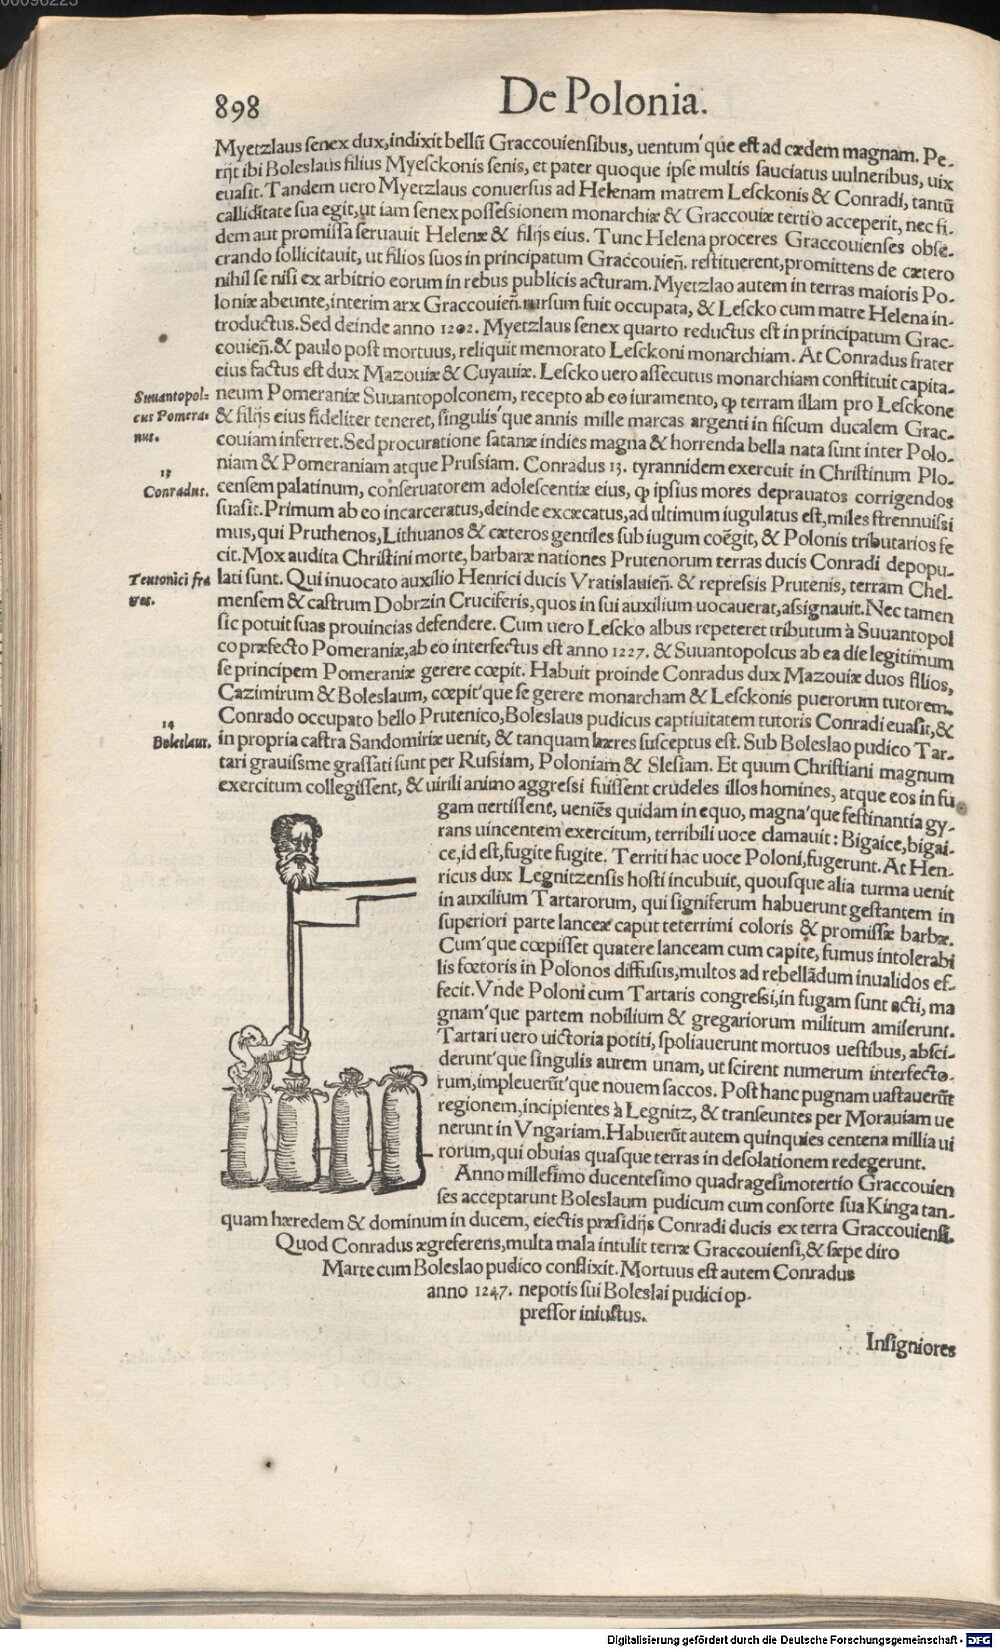 00096225
898
De Polonia.
Myetzlaus senex dux, indixit bellũ Graccouiensibus, uentum'que est ad cædem magnam. Pe-
rijt ibi Boleslaus filius Myesckonis senis, et pater quoque ipse multis sauciatus uulneribus, uix
euasit. Tandem uero Myetzlaus conuersus ad Helenam matrem Lesckonis & Conradi, tantũ
calliditate sua egit, ut iam senex possessionem monarchiæ & Graccouiæ tertiò acceperit, nec fi-
dem aut promissa seruauit Helenæ & filijs eius. Tunc Helena proceres Graccouienses obse-
crando sollicitauit, ut filios suos in principatum Graccouieñ. restituerent, promittens de cætero
nihil se nisi ex arbitrio eorum in rebus publicis acturam. Myetzlao autem in terras maioris Po-
loniæ abeunte, interim arx Graccouieñ. rursum fuit occupata, & Lescko cum matre Helena in-
troductus. Sed deinde anno 1202. Myetzlaus senex quarto reductus est in principatum Grac-
couieñ. & paulo post mortuus, reliquit memorato Lesckoni monarchiam. At Conradus frater
eius factus est dux Mazouiæ & Cuyauiæ. Lescko uero assecutus monarchiam constituit capita-
Suuantopol-
cus Pomera-
nus.
neum Pomeraniæ Suuantopolconem, recepto ab eo iuramento, ꝙ terram illam pro Lesckone
& filijs eius fideliter teneret, singulis'que annis mille marcas argenti in fiscum ducalem Grac-
couiam inferret. Sed procuratione satanæ indies magna & horrenda bella nata sunt inter Polo-
niam & Pomeraniam atque Prussiam. Conradus 13. tyrannidem exercuit in Christinum Plo-
13
Conradus.
censem palatinum, conseruatorem adolescentiæ eius, ꝙ ipsius mores deprauatos corrigendos
suasit. Primum ab eo incarceratus, deinde excæcatus, ad ultimum iugulatus est, miles strennuissi
mus, qui Pruthenos, Lithuanos & cæteros gentiles sub iugum coëgit, & Polonis tributarios fe
cit. Mox audita Christini morte, barbaræ nationes Prutenorum terras ducis Conradi depopu-
Teutonici fra
tres.
lati sunt. Qui inuocato auxilio Henrici ducis Vratislauieñ. & repressis Prutenis, terram Chel-
mensem & castrum Dobrzin Cruciferis, quos in sui auxilium uocauerat, assignauit. Nec tamen
sic potuit suas prouincias defendere. Cum uero Lescko albus repeteret tributum à Suuantopol
co præfecto Pomeraniæ, ab eo interfectus est anno 1227. & Suuantopolcus ab ea die legitimum
se principem Pomeraniæ gerere cœpit. Habuit proinde Conradus dux Mazouiæ duos filios,
Cazimirum & Boleslaum, cœpit'que se gerere monarcham & Lesckonis puerorum tutorem.
14
Boleslaus.
Conrado occupato bello Prutenico, Boleslaus pudicus captiuitatem tutoris Conradi euasit, &
in propria castra Sandomiriæ uenit, & tanquam hæres susceptus est. Sub Boleslao pudico Tar-
tari grauissme grassati sunt per Russiam, Poloniam & Slesiam. Et quum Christiani magnum
exercitum collegissent, & uirili animo aggressi fuissent crudeles illos homines, atque eos in fu
gam uertissent, ueniẽs quidam in equo, magna'que festinantia gy-
rans uincentem exercitum, terribili uoce clamauit: Bigaice, bigai-
ce, id est, fugite fugite. Territi hac uoce Poloni, fugerunt. At Hen-
ricus dux Legnitzensis hosti incubuit, quousque alia turma uenit
in auxilium Tartarorum, qui signiferum habuerunt gestantem in
superiori parte lanceæ caput teterrimi coloris & promissæ barbæ.
Cum'que cœpisset quatere lanceam cum capite, fumus intolerabi
lis fœtoris in Polonos diffusus, multos ad rebellãdum inualidos ef-
fecit. Vnde Poloni cum Tartaris congressi, in fugam sunt acti, ma
gnam'que partem nobilium & gregariorum militum amiserunt.
Tartari uero uictoria potiti, spoliauerunt mortuos uestibus, absci-
derunt'que singulis aurem unam, ut scirent numerum interfecto-
rum, impleuerũt'que nouem saccos. Post hanc pugnam uastauerũt
regionem, incipientes à Legnitz, & transeuntes per Morauiam ue
nerunt in Vngariam. Habuerũt autem quinquies centena millia ui
rorum, qui obuias quasque terras in desolationem redegerunt.
Anno millesimo ducentesimo quadragesimotertio Graccouien
ses acceptarunt Boleslaum pudicum cum consorte sua Kinga tan-
quam hæredem & dominum in ducem, eiectis præsidijs Conradi ducis ex terra Graccouiensi.
Quod Conradus ægreferens, multa mala intulit terræ Graccouiensi, & sæpe diro
Marte cum Boleslao pudico conflixit. Mortuus est autem Conradus
anno 1247. nepotis sui Boleslai pudici op-
pressor iniustus.
Insigniores
Digitalisierung gefördert durch die Deutsche Forschungsgemeinschaft - DFG